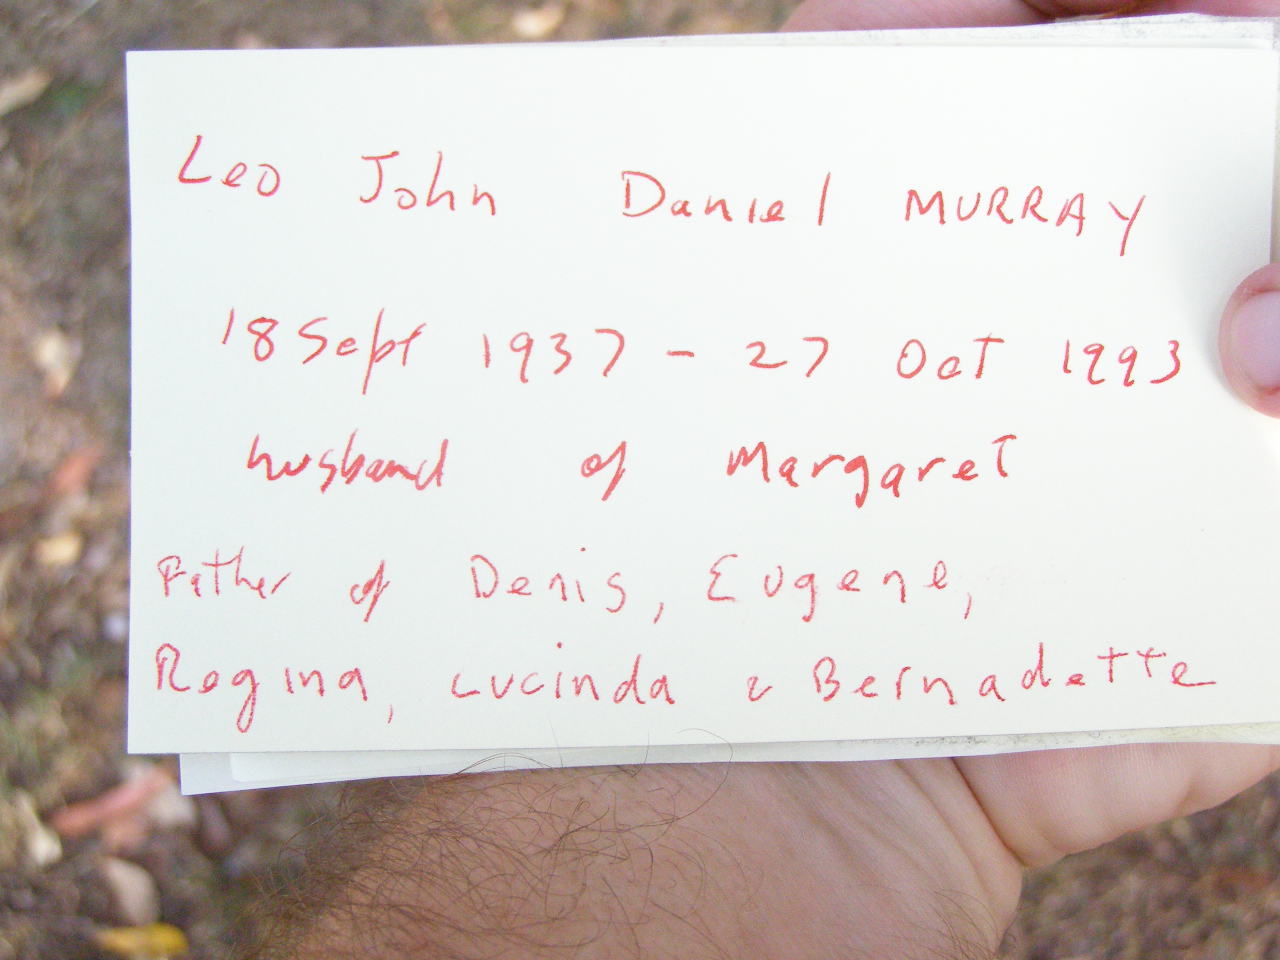 Leo John Daniel MURRAY
18 Sept 1937 - 27 Oct 1993
husband of Margaret
Father of Denis, Eugene,
Regina, Lucinda & Bernadette